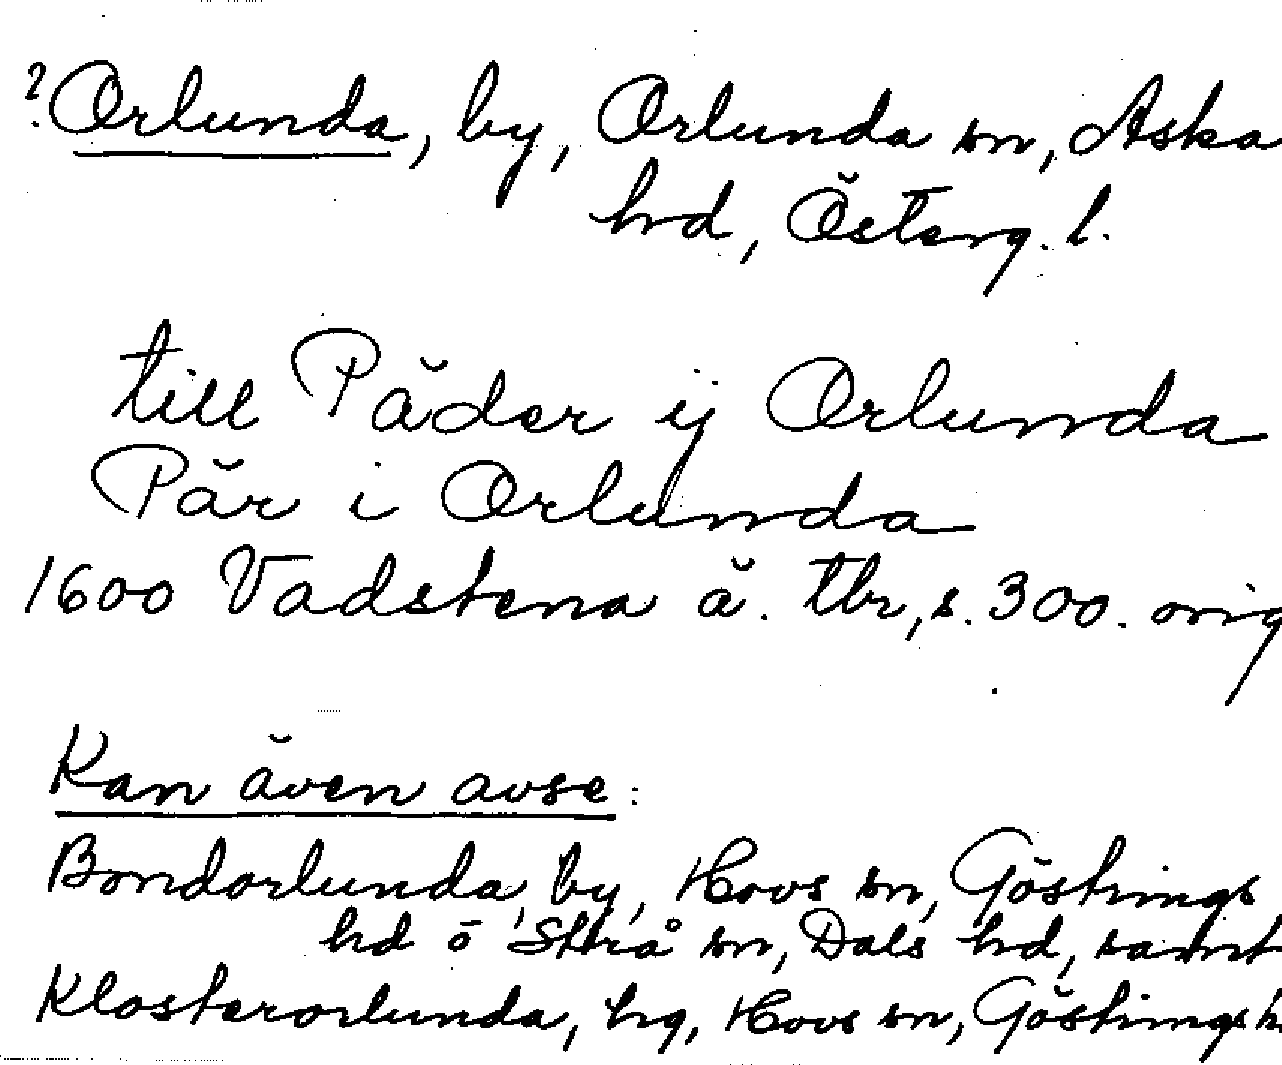 ? Orlunda, by, Orlunda sn, Aska
hd, Österg. l.
till Päder ij Orlunda
Pär i Orlunda
1600 Vadstena ä. tbr, s. 300. orig
Kan även avse:
Bondorlunda, by, Hovs sn, Göstrings
hd o Strå sn, Dals hd, samt
Klosterorlunda, hg, Hovs sn, Göstrings h